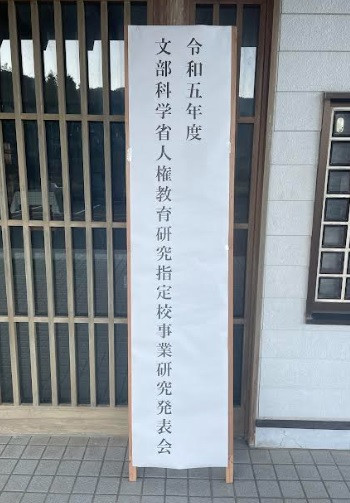 令和五年度
文部科学省人権教育研究指定校事業研究発表会